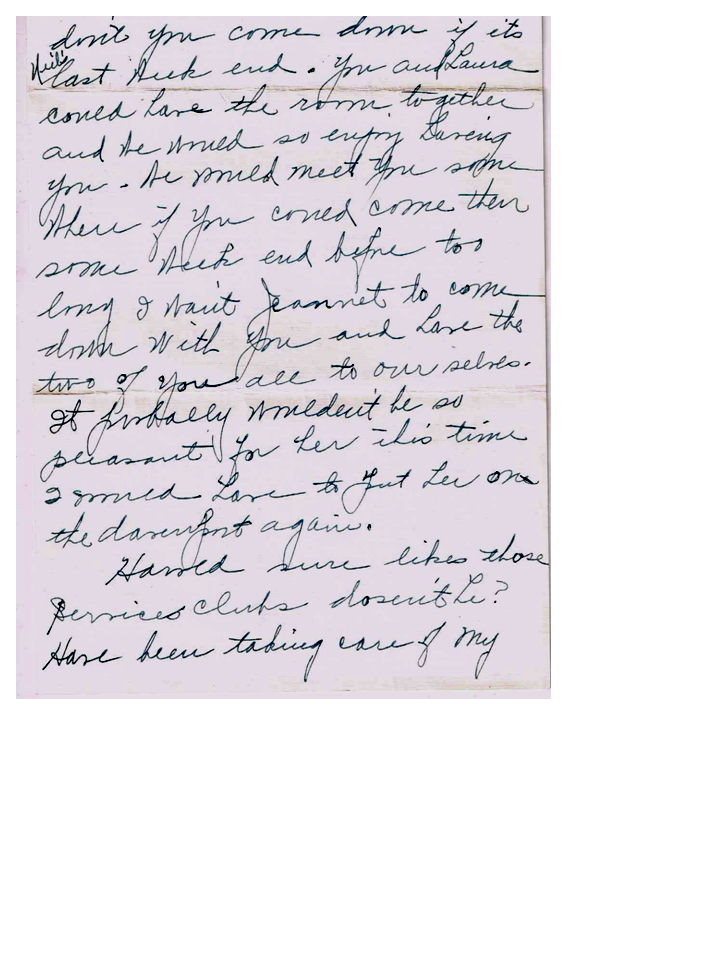 don't you come down if its
Neil's
last week end. You and Laura
could have the room together
and we would so enjoy having
you. We would meet you some
where if you could come then
some week end before too
long I want Jeannet to come
down with you and have the
two of you all to our selves.
It probally wouldent be so
pleasant for her this time
I would have to put her on
the davenport again.
Harold sure likes those
Services Clubs dosen't he?
Have been taking care of my